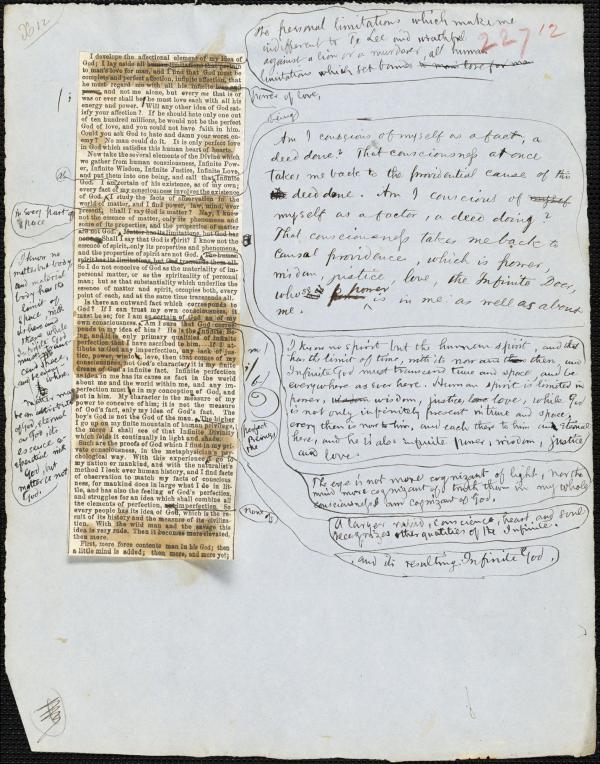 The personal limitations which make me
indifferent to and wrathful
against a lion or a murderer, all human
limitations which set
227 12
power of love,
Being
Am I conscious of myself as a fact, a
deed done? That consciousness at once
takes me back to the providential cause of the
deed done. Am I conscious of
myself as a factor, a deed doing?
That consciousness takes me back to
causal providence, which is power
wisdom, justice, love, the Infinite Doer,
whose power is in me as well as about
me.
I know no spirit but the human spirit, and that
has the limit of time, with its now and then, and
Infinite God must transcend time and space, and be
everywhere as ever here. Human spirit is limited in
power, wisdom, justice, love, while God
is not only infinitely present in time and space,
every then is now to him, and each there to him an eternal
here, and he is also infinite power, wisdom, justice
and love.
The eye is not more cognizant of light, nor the
mind more cognizant of truth than in my whole
consciousness I am cognizant of God.
A larger mind, conscience, heart and soul
recognizes other quantities of the Infinite.
and its resulting Infinite God.
I develope the affectional element of my idea of
God; I lay aside all
to man's love for man, and I find that God must be
complete and perfect affection, infinite affection, that
he must regard me with all his infinite
and not me alone, but every one that is or
was or ever shall be he must love each with all his
energy and power. Will any other idea of God sat-
isfy your affection? If he should hate only one out
of ten hundred millions, he would not be the perfect
God of love, and you could not have faith in him.
Could you ask God to hate and damn your worst en-
emy? No man could do it. It is only perfect love
in God which satisfies this human heart of hearts.
Now take the several elements of the Divine which
we gather from human consciousness, Infinite Pow-
er, Infinite Wisdom, Justice, Infinite Love,
and put them into one being, and call that Infinite
God. I am certain of his existence, as of my own;
every fact of my consciousness involves the existence
of God. I study the facts of observation in the
world of matter, and I find power, law, mind, ever
present. Shall I say God is matter? Nay, I know
not the essence of matter, only its phenomena and
some of its properties, and the properties of matter
are not God. Matter has its limitations, but God has
none. Shall I say that God is spirit? I know not the
essence of spirit, only its properties and phenomena,
and the properties of spirit are not God. The human
spirit has its limitations, but God transcends them all.
So I do not conceive of God as the materiality of im-
personal matter, or as the spirituality of personal
man; but as that substantiality which underlies the
essence of matter and spirit, occupies both, every
point of each, and at the same time transcends all.
Is there an outward fact which corresponds to
God? If I can trust my own consciousness, it
must be so; for I am as certain of God as of my
own consciousness. Am I sure that God corres-
ponds to my idea of him? He is the Infinite Be-
ing, and it is only primary qualities of Infinite
perfection that I have ascribed to him. If I at-
tribute to God any imperfection, any lack of jus-
tice, power, wisdom, love, then that comes of my
consciousness, not God's character; it is my finite
dream of God's infinite fact. Infinite perfection
as idea in me has its cause as fact in the world
about me and the world within me, and any im-
perfection must be in my conception of God, and
not in him. My character is the measure of my
power to conceive of him; it is not the measure
of God's fact, only my idea of God's fact. The
boy's God is not the God of the man. The higher
I go up on my finite mountain of human privilege,
the more I shall see of that Infinite Divinity
which folds it continually in light and shade.
Such are the proofs of God which I find in my pri-
vate consciousness, in the metaphysician's psy-
chological way. With this experience I go to
my nation or mankind, and with the naturalist's
method I look over human history, and I find facts
of observation to match my facts of conscious-
ness, for mankind does in large what I do in lit-
tle, and has also the feeling of God's perfection,
and struggles for an idea which shall combine all
the elements of perfection, imperfection. So
every people has its idea of God, which is the re-
sult of its history and the measure of its civiliza-
tion. With the wild man and the savage this
idea is very rude. Then it becomes more elevated.
then more.
First, mere force contents man in his God; then
a little mind is added; then more, and more yet;
in every part of
space
I know no
material body
and material
body has the
limit of
space, with
its here and
there
Infinite
God must trans-
cend space,
Matter may
be an attribute
of God, eternal
as God, its
essence
God, but
matter is not
God.
perfect
Because
the
none of